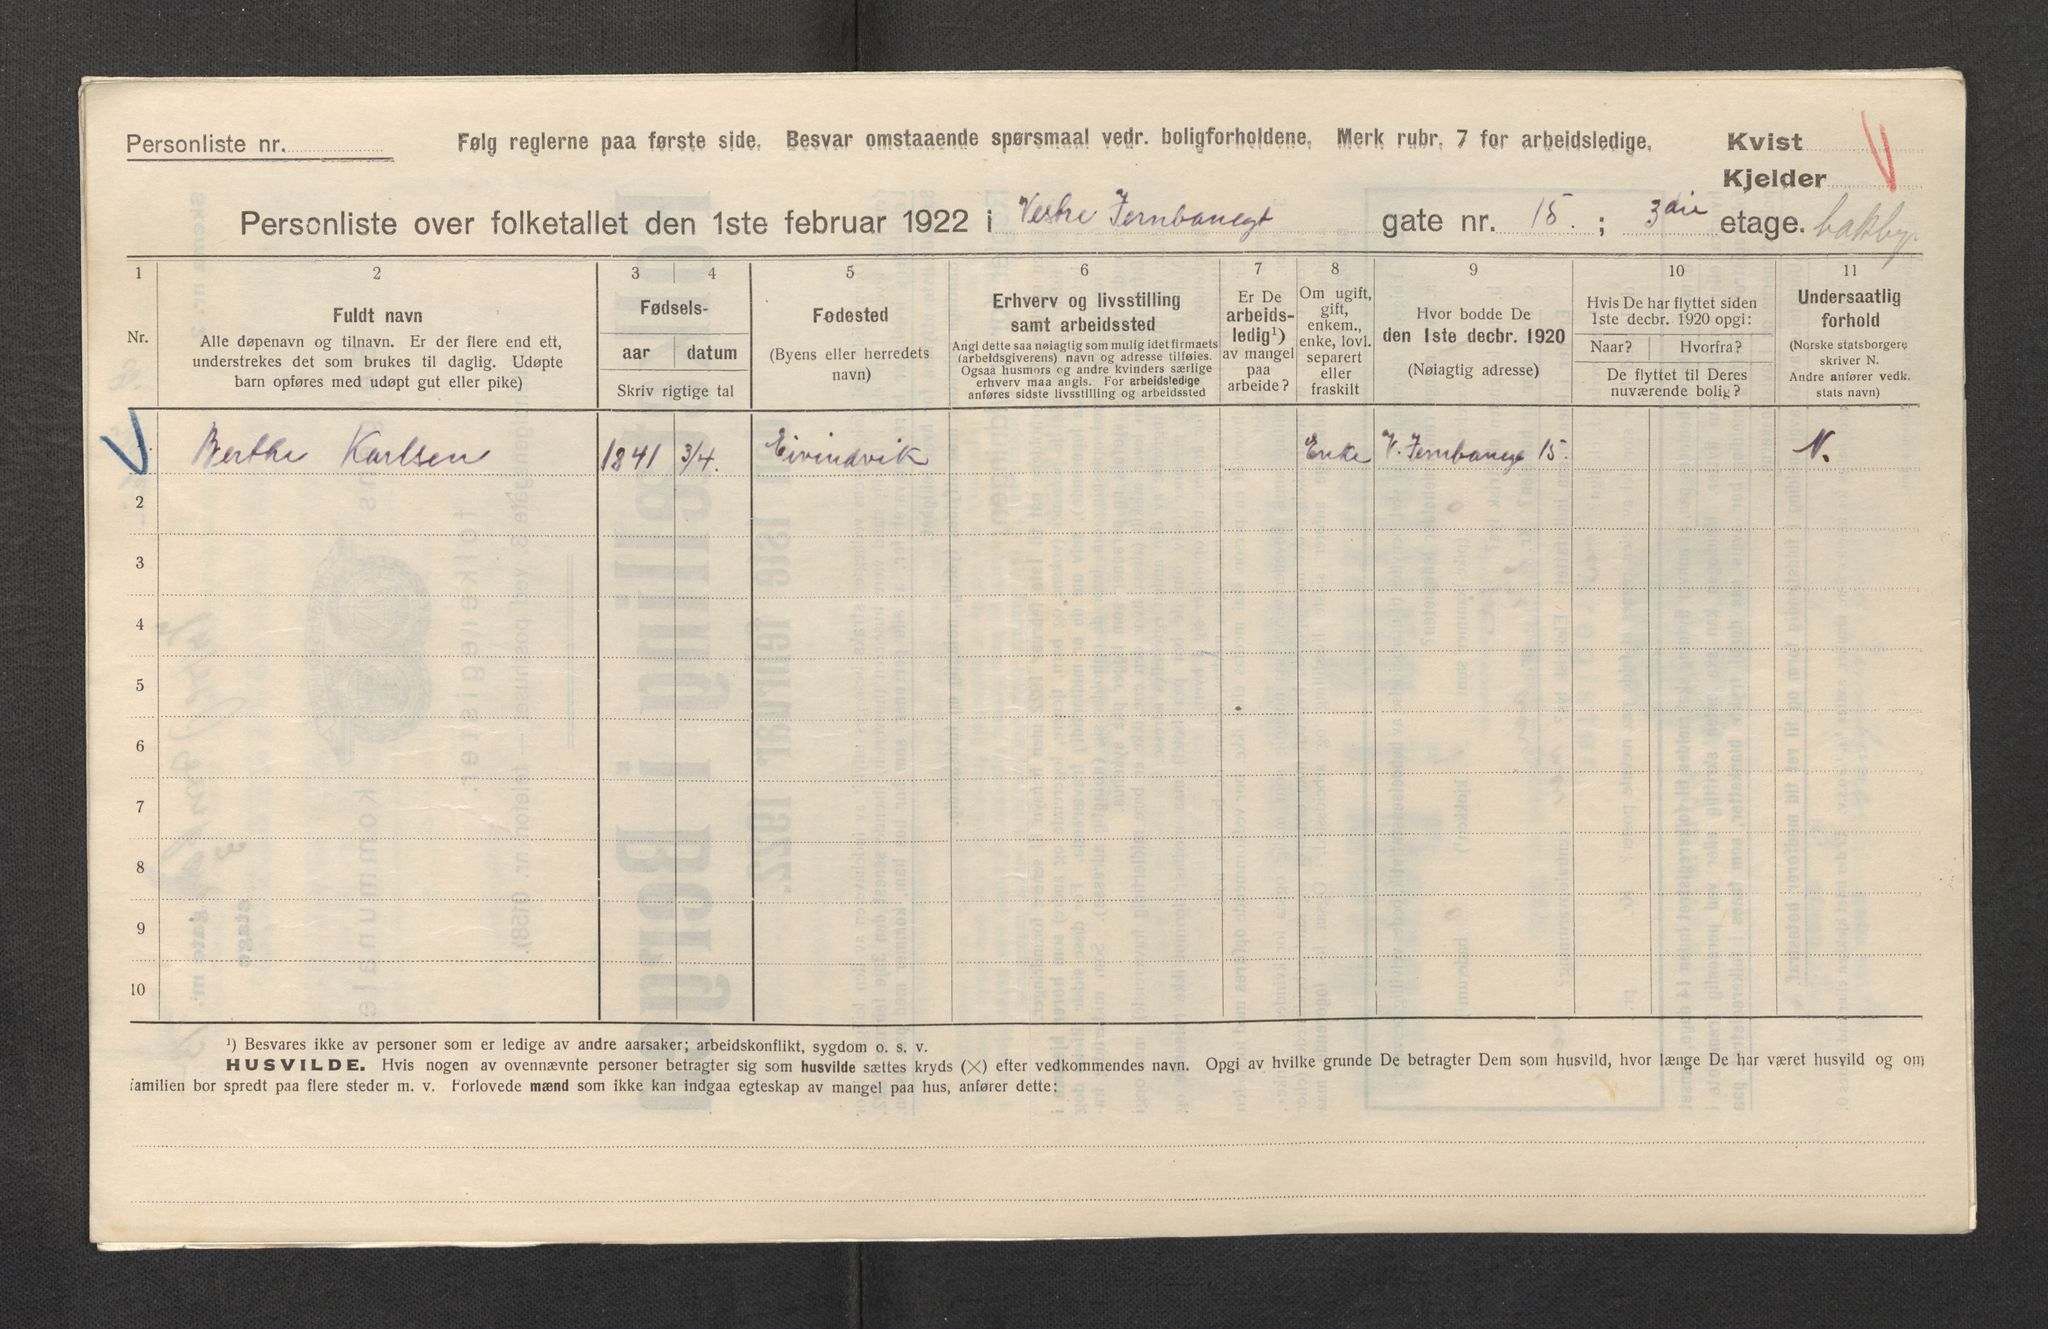 Personliste nr.
Følg reglerne paa første side. Besvar omstaaende spørsmaal vedr. boligforholdene. Merk rubr. 7 for arbeidsledige.
Kvist
Kjelder
Personliste over folketallet den 1ste februar 1922 i Vestre Jernbanegt gate nr. 15. ; 3die etage. bakby
1 2 3 4 5 6 7 8 9 10 11
Nr.
Fuldt navn
Alle døpenavn og tilnavn. Er der flere end ett,
understrekes det som brukes til daglig. Udøpte
barn opføres med udøpt gut eller pike)
Fødsels-
aar datum
Skriv rigtige tal
Fødested
(Byens eller herredets
navn)
Erhverv og livsstilling
samt arbeidssted
Angi dette saa nøiagtig som mulig idet firmaets
(arbeidsgiverens) navn og adresse tilføies.
Ogsaa husmors og andre kvinders særlige
erhverv maa angis. For arbeidsledige
anføres sidste livsstilling og arbeidssted
Er De
arbeids-
ledig¹)
av mangel
paa
arbeide?
Om ugift,
gift,
enkem.,
enke, lovl.
separert
eller
fraskilt
Hvor bodde De
den 1ste decbr. 1920
(Nøiagtig adresse)
Hvis De har flyttet siden
1ste decbr. 1920 opgi:
Naar? Hvorfra?
De flyttet til Deres
nuværende bolig?
Undersaatlig
forhold
(Norske statsborgere
skriver N.
Andre anfører vedk.
stats navn)
Berthe Karlsen 1841 3/4. Eivindvik Enke V. Jernbanegt 15. N.
2
3
4
5
6
7
8
9
10
¹) Besvares ikke av personer som er ledige av andre aarsaker; arbeidskonflikt, sygdom o. s. v.
HUSVILDE. Hvis nogen av ovennævnte personer betragter sig som husvilde sættes kryds (×) efter vedkommendes navn. Opgi av hvilke grunde De betragter Dem som husvild, hvor længe De har været husvild og om
familien bor spredt paa flere steder m. v. Forlovede mænd som ikke kan indgaa egteskap av mangel paa hus, anfører dette: